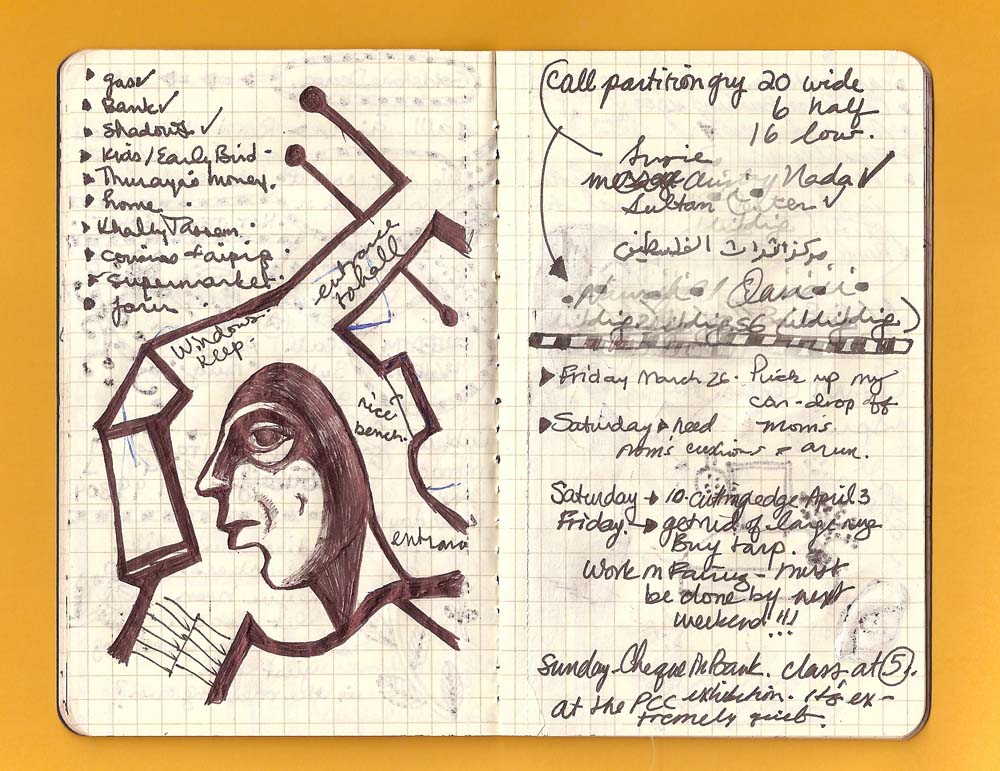 gas
Bank
Shadows
Kids/Early Bird
Thuraya's money.
home
Khaley Tassem
cousins +
supermarket
Windows
keep.
entrance
to hall
nice
bench.
entrance
Call partition guy 20 wide
6 half
16 low.
Susie
Nada
Sultan
مركز التراث الفلسطيني
Friday March 26. Pick up my
car-drop off
Saturday need moms
mom's cushions
Saturday 10-cutting edge April 3
Friday. get rid of large rug
Buy tarp.
Work in Fairuz - must
be done by next
weekend!!!
Sunday-Cheque in Bank. class at 5.
at the PCC exhibition. its ex-
tremely quiet.